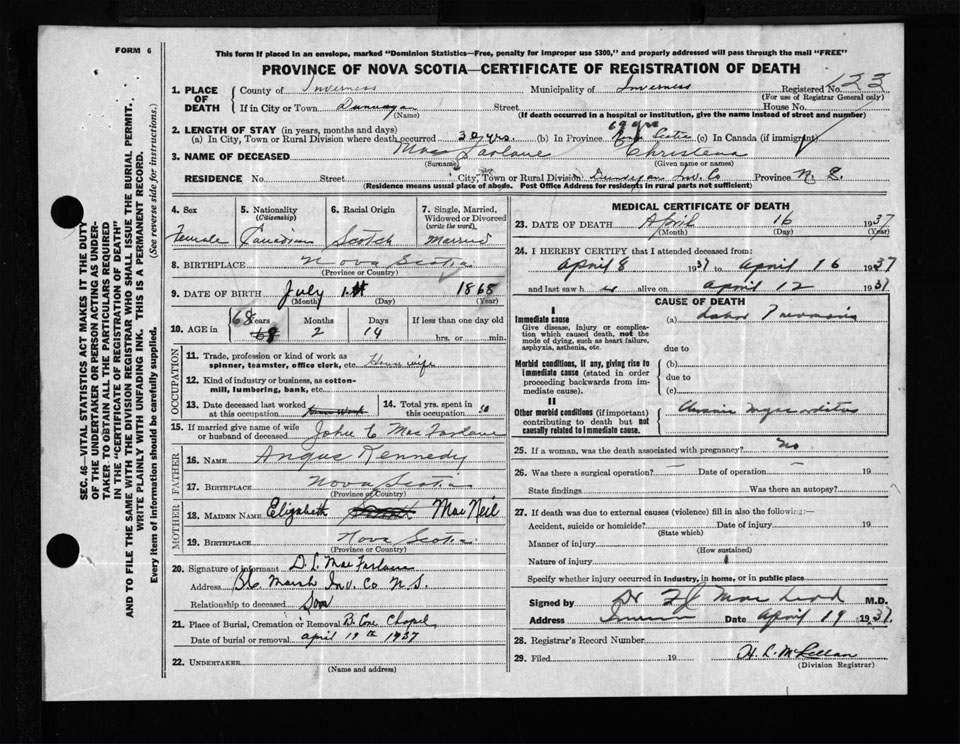 FORM 6
This form if placed in an envelope, marked "Dominion Statistics—Free, penalty for improper use $300," and properly addressed will pass through the mail "FREE"
PROVINCE OF NOVA SCOTIA—CERTIFICATE OF REGISTRATION OF DEATH
SEC. 46—VITAL STATISTICS ACT MAKES IT THE DUTY
OF THE UNDERTAKER OR PERSON ACTING AS UNDER-
TAKER: TO OBTAIN ALL THE PARTICULARS REQUIRED
IN THE "CERTIFICATE OF REGISTRATION OF DEATH"
AND TO FILE THE SAME WITH THE DIVISION REGISTRAR WHO SHALL ISSUE THE BURIAL PERMIT.
WRITE PLAINLY WITH UNFADING INK. THIS IS A PERMANENT RECORD.
Every item of information should be carefully supplied. (See reverse side for instructions.)
1. PLACE OF DEATH County of Inverness Municipality of Inverness Registered No. 123
(For use of Registrar General only)
If in City or Town Dunvegan Street House No.
(Name) (If death occurred in a hospital or institution, give the name instead of street and number)
2. LENGTH OF STAY (in years, months and days)
(a) In City, Town or Rural Division where death occurred 30 yrs. (b) In Province Nova Scotia (c) In Canada (if immigrant)
3. NAME OF DECEASED Mac Farlane Christena
(Surname) (Given name or names)
RESIDENCE No. Street City, Town or Rural Division Dunvegan Inv. Co Province N. S.
(Residence means usual place of abode. Post Office Address for residents in rural parts not sufficient)
4. Sex 5. Nationality (Citizenship) 6. Racial Origin 7. Single, Married, Widowed or Divorced (write the word)
Female Canadian Scotch Married
8. BIRTHPLACE Nova Scotia
(Province or Country)
9. DATE OF BIRTH July 1st 1868
(Month) (Day) (Year)
10. AGE in Years Months Days If less than one day old
68 2 14 hrs. or min.
OCCUPATION
11. Trade, profession or kind of work as spinner, teamster, office clerk, etc. House wife
12. Kind of industry or business, as cotton-mill, lumbering, bank, etc.
13. Date deceased last worked at this occupation 14. Total yrs. spent in this occupation 50
15. If married give name of wife or husband of deceased John C Mac Farlane
FATHER
16. NAME Angus Kennedy
17. BIRTHPLACE Nova Scotia
(Province or Country)
MOTHER
18. MAIDEN NAME Elizabeth Mac Neil
19. BIRTHPLACE Nova Scotia
(Province or Country)
20. Signature of informant D. L. Mac Farlane
Address Marsh Inv. Co N. S.
Relationship to deceased Son
21. Place of Burial, Cremation or Removal Cove Chapel
Date of burial or removal april 19th 1937
22. UNDERTAKER
(Name and address)
MEDICAL CERTIFICATE OF DEATH
23. DATE OF DEATH April 16 1937
(Month) (Day) (Year)
24. I HEREBY CERTIFY that I attended deceased from:
April 8 1937 to April 16 1937
and last saw h er alive on April 12 1937
CAUSE OF DEATH
I
Immediate cause (a) Lobar Pneumonia
Give disease, injury or complication which caused death, not the mode of dying, such as heart failure, asphyxia, asthenia, etc.
due to
Morbid conditions, if any, giving rise to immediate cause (stated in order proceeding backwards from immediate cause). (b)
due to
(c)
II
Other morbid conditions (if important) contributing to death but not causally related to immediate cause. Chronic myocarditis
25. If a woman, was the death associated with pregnancy? No
26. Was there a surgical operation? — Date of operation — 19
State findings Was there an autopsy?
27. If death was due to external causes (violence) fill in also the following:—
Accident, suicide or homicide? Date of injury 19
(State which)
Manner of injury
(How sustained)
Nature of injury
Specify whether injury occurred in industry, in home, or in public place
Signed by Dr Mac Leod M.D.
Address Date April 19 1937
28. Registrar's Record Number
29. Filed 19 H. L. McLellan
(Division Registrar)